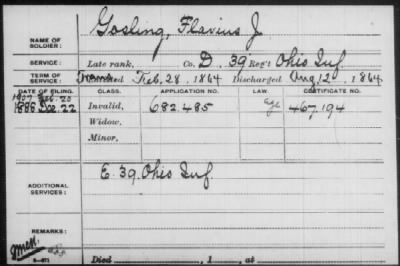 NAME OF SOLDIER: Gosling, Flavius J.
SERVICE: Late rank, Co. D, 39 Reg't Ohio Inf.
TERM OF SERVICE: Trans Feb. 28, 1864 Discharged Aug. 12, 1864
DATE OF FILING. CLASS. APPLICATION NO. LAW. CERTIFICATE NO.
1907 Feb. 25
1888 Dec. 22 Invalid, 682.485 age 467.194
Widow,
Minor,
ADDITIONAL SERVICES: E. 39. Ohio Inf.
REMARKS:
Died , 1 , at